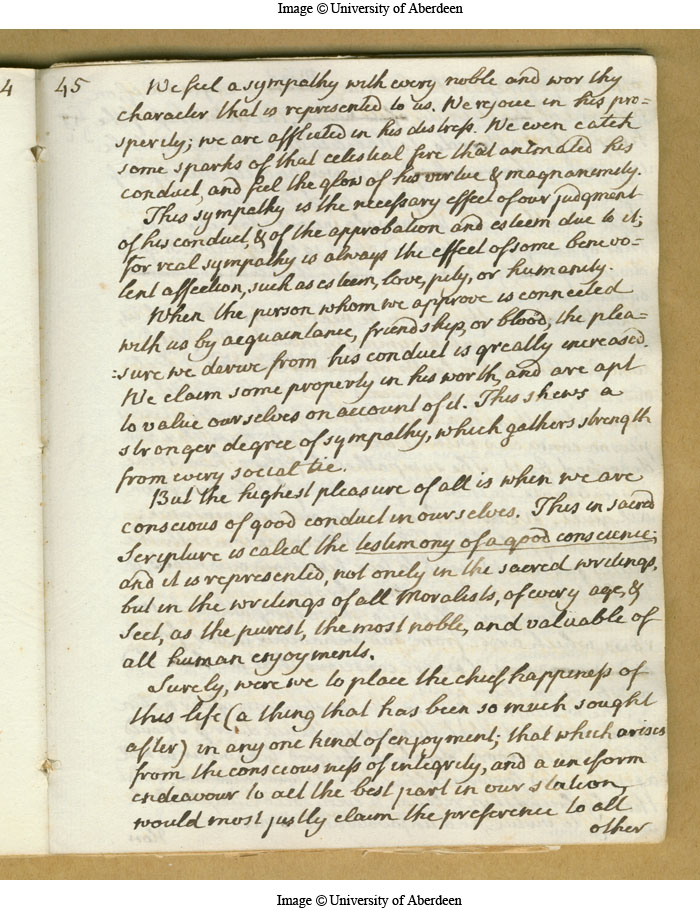 Image © University of Aberdeen
4
45
We feel a sympathy with every noble and worthy
character that is represented to us. We rejoice in his pro=
sperity; we are afflicted in his distress. We even catch
some sparks of that celestial fire that animated his
conduct, and feel the glow of his virtue & magnanimity.
This sympathy is the necessary effect of our judgment
of his conduct, & of the approbation and esteem due to it;
for real sympathy is always the effect of some benevo=
lent affection, such as esteem, love, pity, or humanity.
When the person whom we approve is connected
with us by acquaintance, friendship, or blood, the plea=
:sure we derive from his conduct is greatly increased.
We claim some property in his worth, and are apt
to value ourselves on account of it. This shews a
stronger degree of sympathy, which gathers strength
from every social tie.
But the highest pleasure of all is when we are
conscious of good conduct in ourselves. This in sacred
Scripture is called the testimony of a good conscience;
and it is represented, not onely in the sacred writings,
but in the writings of all Moralists, of every age, &
Sect, as the purest, the most noble, and valuable of
all human enjoyments.
Surely, were we to place the chief happiness of
this life (a thing that has been so much sought
after) in any one kind of enjoyment; that which arises
from the consciousness of integrity, and a uniform
endeavour to act the best part in our station,
would most justly claim the preference to all
other
Image © University of Aberdeen